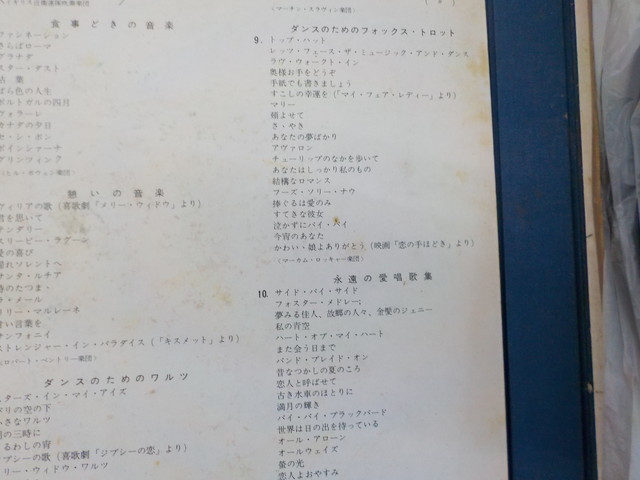 食事どきの音楽
ファシネーション
さらばローマ
グラナダ
スター・ダスト
枯葉
ばら色の人生
ポルトガルの四月
ヴォラーレ
カナダの夕日
セ・シ・ボン
ポインシャーナ
グリンツィング
憩いの音楽
ヴィリアの歌（喜歌劇「メリー・ウィドウ」より）
君を思いて
テンダリー
スリーピー・ラグーン
愛の喜び
帰れソレントへ
サンタ・ルチア
時のたつまゝ
ラ・メール
リリー・マルレーネ
甘い言葉を
サンフォネイ
ストレンジャー・イン・パラダイス（「キスメット」より）
（ロバート・ベントリー楽団）
ダンスのためのワルツ
スターズ・イン・マイ・アイズ
パリの空の下
小さなワルツ
朝の三時に
うるわしの宵
ジプシーの歌（喜歌劇「ジプシーの恋」より）
メリー・ウィドウ・ワルツ
（マーチン・スラヴィン楽団）
ダンスのためのフォックス・トロット
9. トップ・ハット
レッツ・フェース・ザ・ミュージック・アンド・ダンス
ラヴ・ウォークト・イン
奥様お手をどうぞ
手紙でも書きましょう
すこしの幸運を（「マイ・フェア・レディー」より）
マリー
頬よせて
さゝやき
あなたの夢ばかり
アヴァロン
チューリップのなかを歩いて
あなたはしっかり私のもの
結構なロマンス
フーズ・ソリー・ナウ
捧ぐるは愛のみ
すてきな彼女
泣かずにバイ・バイ
今宵のあなた
かわいゝ娘よありがとう（映画「恋の手ほどき」より）
（マーカム・ロッキャー楽団）
永遠の愛唱歌集
10. サイド・バイ・サイド
フォスター・メドレー；
夢みる佳人、故郷の人々、金髪のジェニー
私の青空
ハート・オブ・マイ・ハート
また会う日まで
バンド・プレイド・オン
昔なつかしの夏のころ
恋人と呼ばせて
古き水車のほとりに
満月の輝き
バイ・バイ・ブラックバード
世界は日の出を待っている
オール・アローン
オールウェイズ
螢の光
恋人よおやすみ